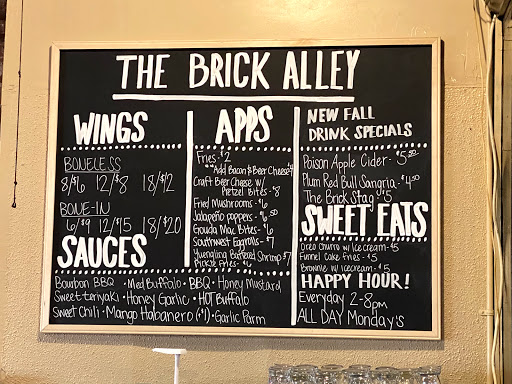 THE BRICK ALLEY
WINGS
BONELESS
8/$6 12/$8 18/$12
BONE-IN
6/$9 12/$15 18/$20
SAUCES
Bourbon BBQ • Med Buffalo • BBQ • Honey Mustard
Sweet teriyaki • Honey Garlic • HOT Buffalo
Sweet Chili • Mango Habanero (+$1) • Garlic Parm
APPS
Fries - $2
**Add Bacon & Beer Cheese
Craft Beer Cheese w/
Pretzel Bites - $8
Fried Mushrooms - $6
Jalapeño poppers - $6.50
Gouda Mac Bites - $6
Southwest Eggrolls - $7
Yuengling Battered Shrimp $7
Pickle Fries - $6
NEW FALL
DRINK SPECIALS
Poison Apple Cider - 5.50
Plum Red Bull Sangria - $4.50
The Brick Stag - $5
SWEET EATS
Oreo Churro w/ Icecream - $5
Funnel Cake Fries - $5
Brownie w/ icecream - $5
HAPPY HOUR!
Everyday 2-8pm
ALL DAY Monday's